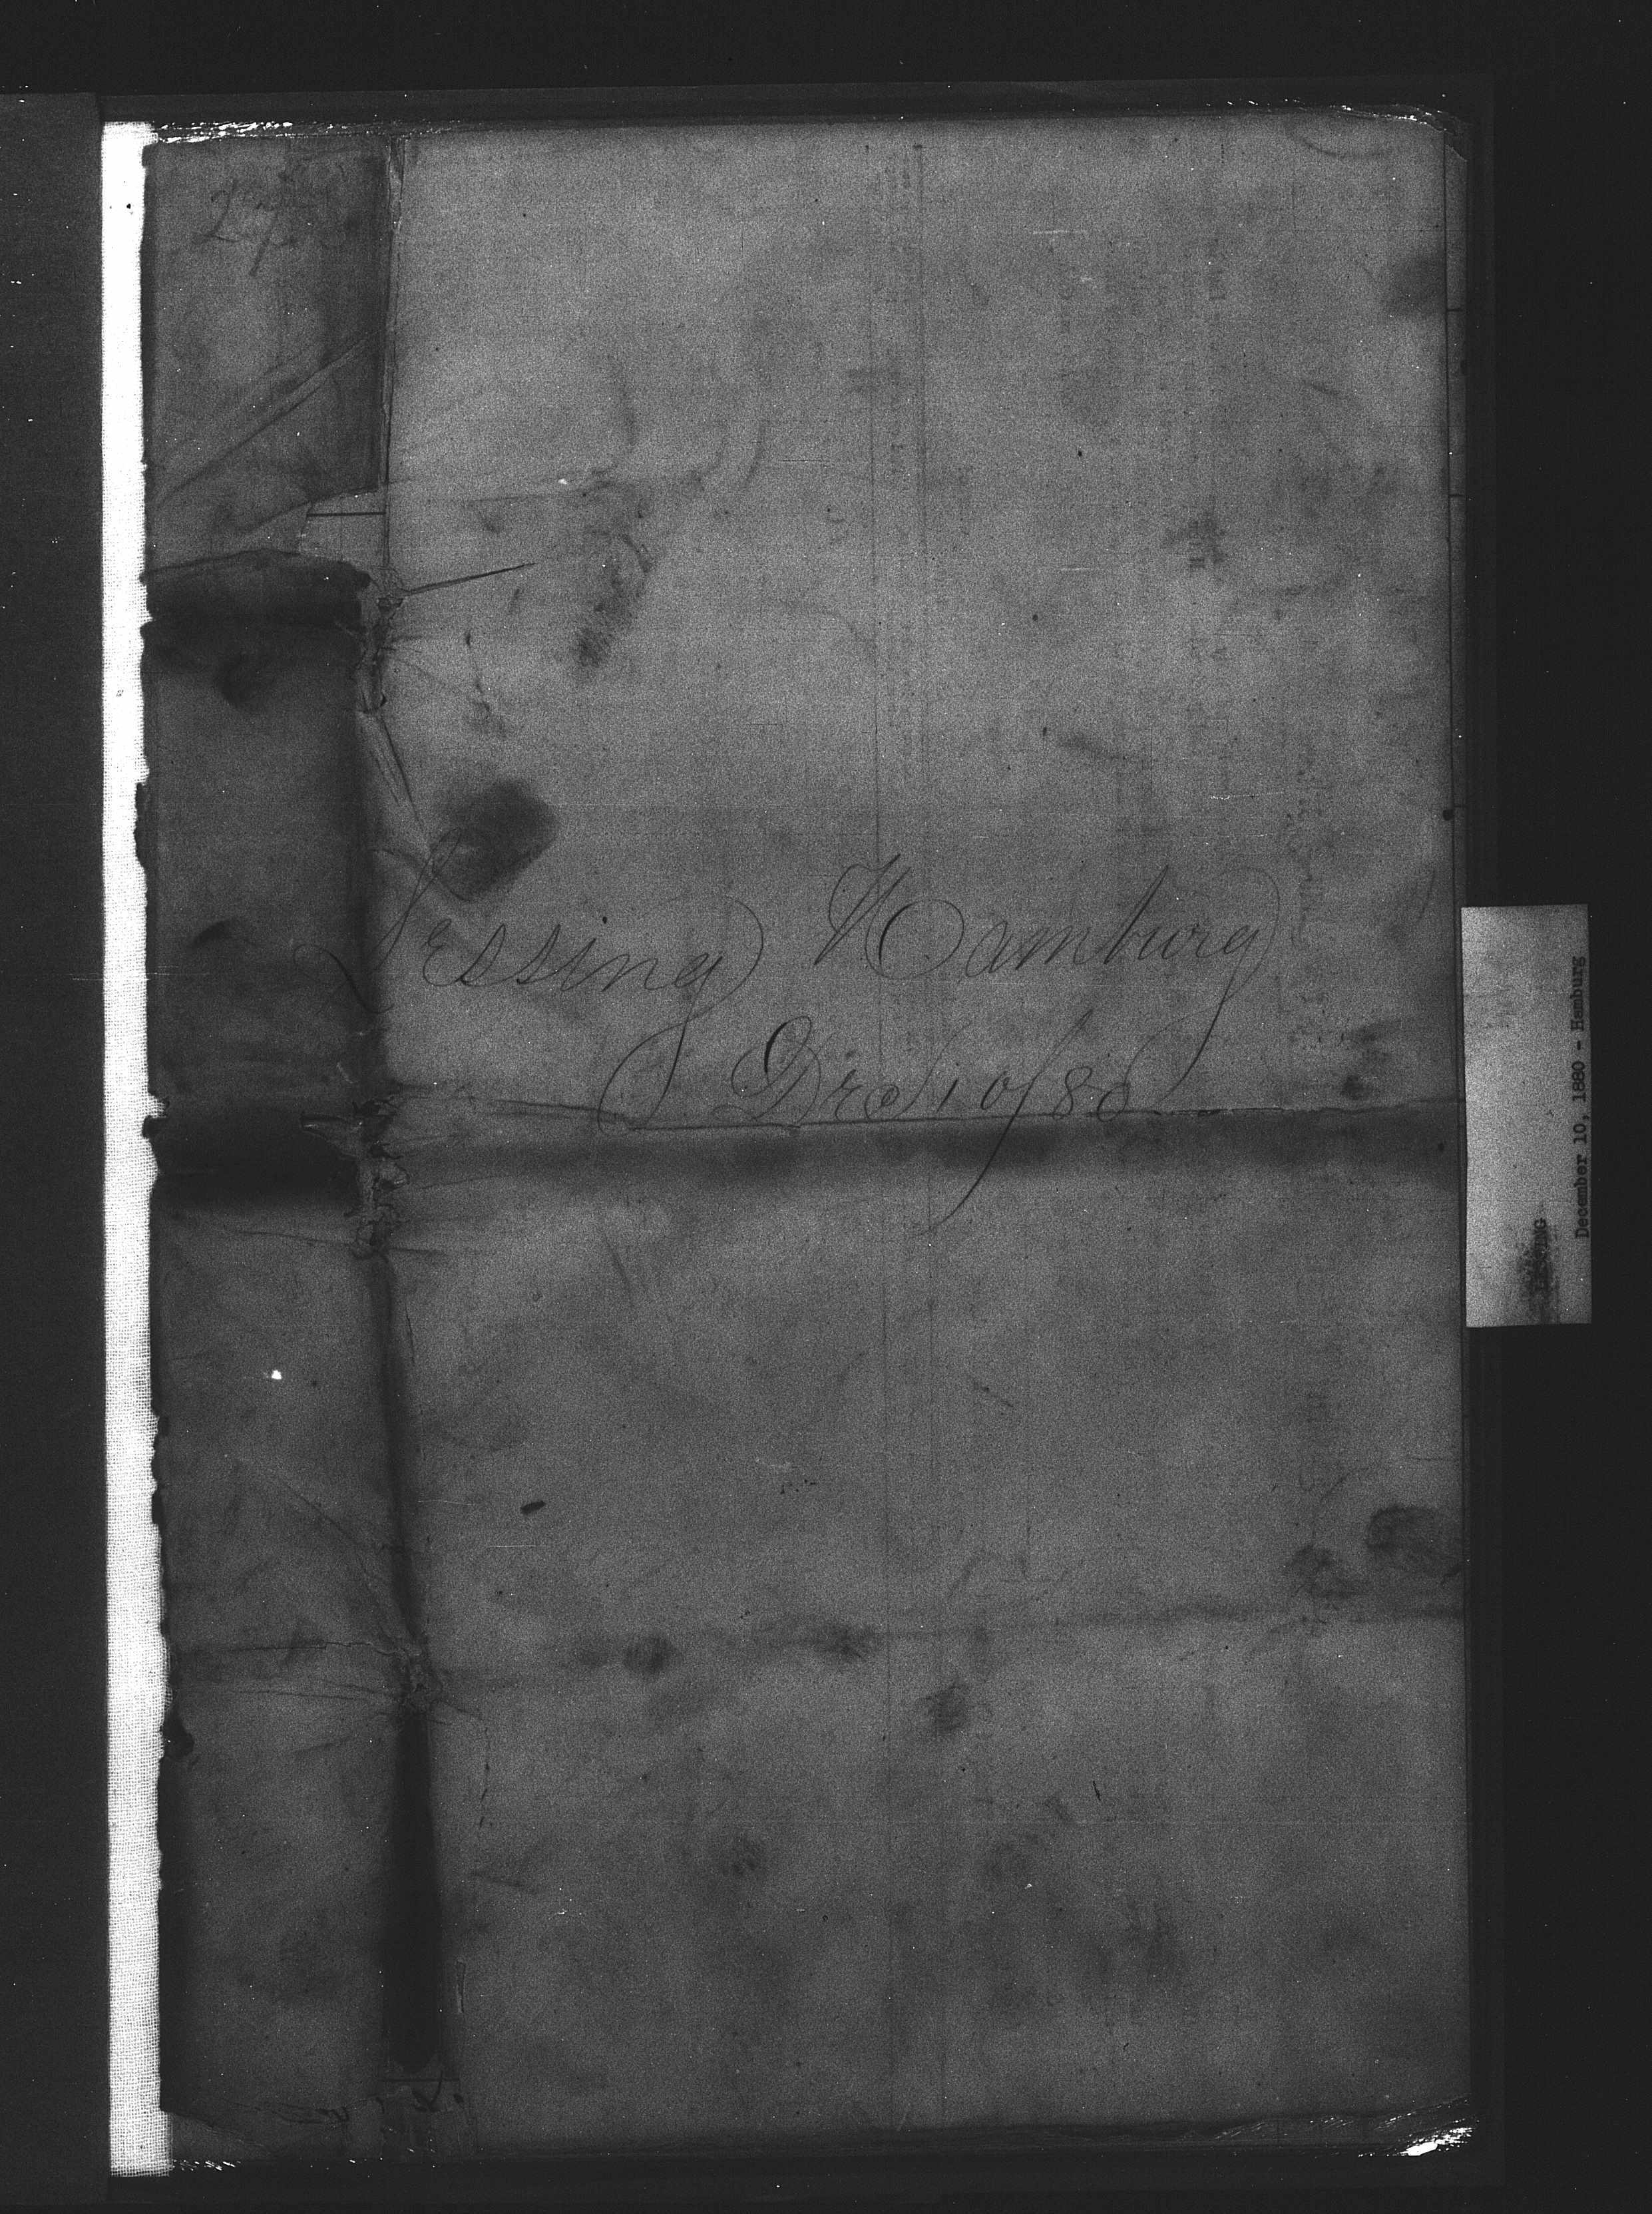 Lessing Hamburg
Dec 10/80
LESSING
December 10, 1880 - Hamburg